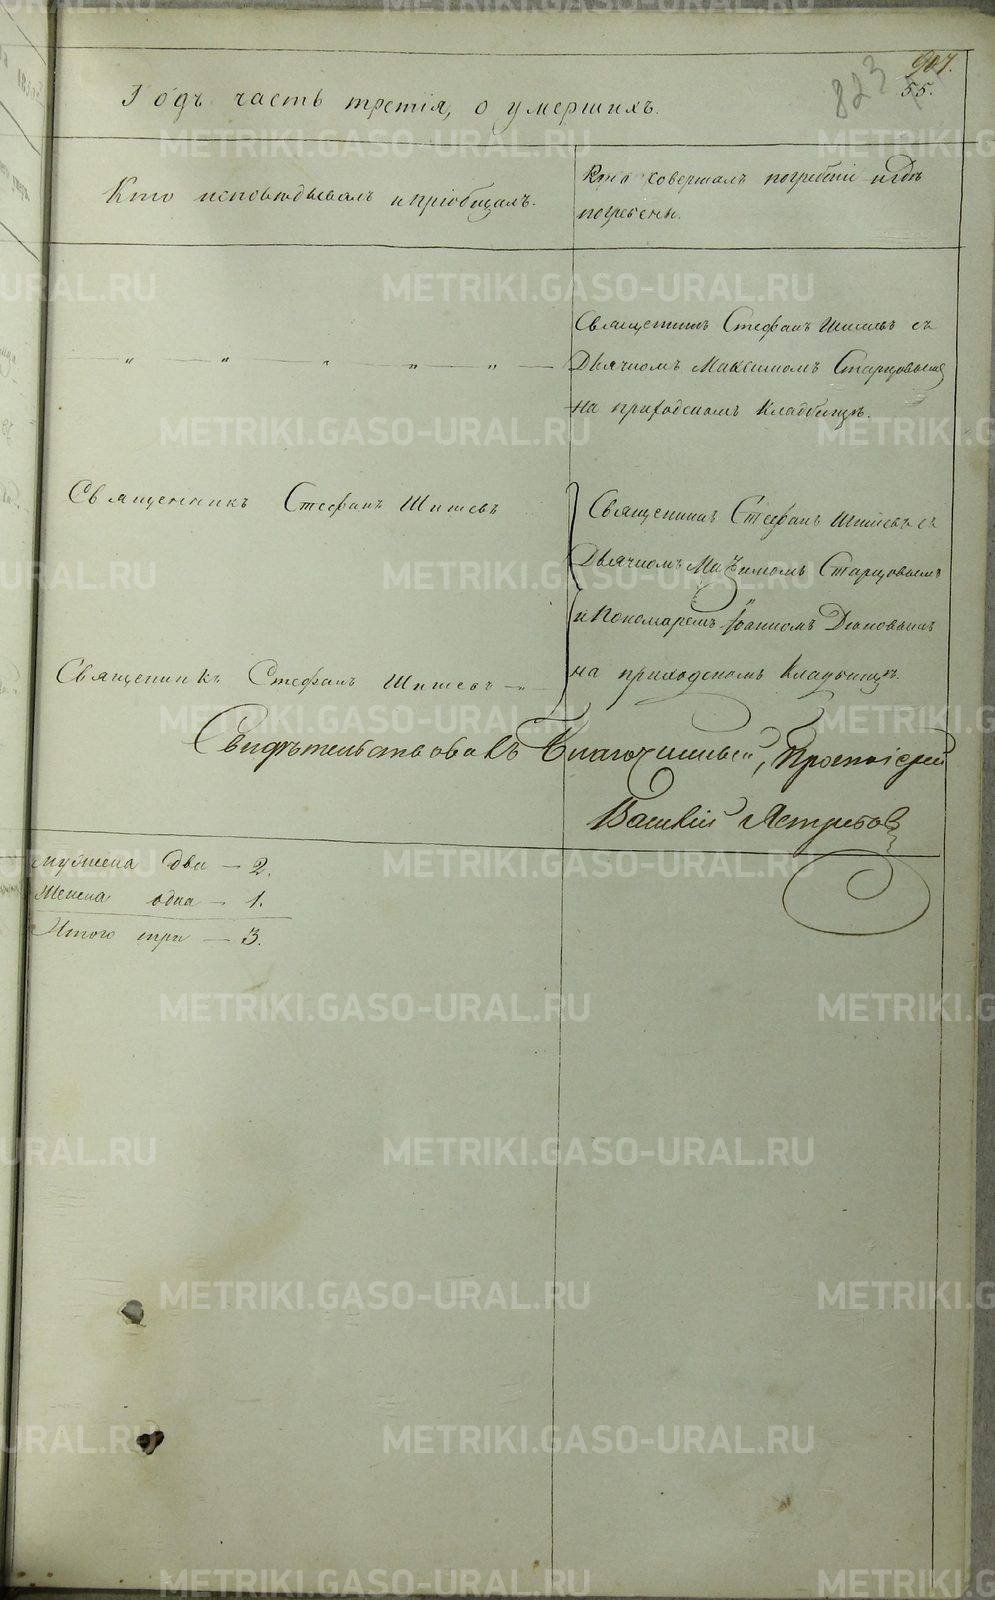 907.
823
55.
Годъ часть третія, о умершихъ.
Кто исповѣдывалъ и пріобщалъ.
Кто совершалъ погребеніе и гдѣ
погребены.
Священникъ Стефанъ Шишевъ съ
Дьячкомъ Максимомъ Старцовымъ
на приходскомъ кладбищѣ.
Священникъ Стефанъ Шишевъ
Священникъ Стефанъ Шишевъ съ
Дьячкомъ Максимомъ Старцовымъ
и Пономаремъ Іоанномъ
на приходскомъ кладбищѣ.
Священникъ Стефанъ Шишевъ
Свидѣтельствовалъ Благочинный, Протоіерей
Василій Ястребовъ
мужеска два — 2.
Женска одна — 1.
Итого три — 3.
METRIKI.GASO-URAL.RU